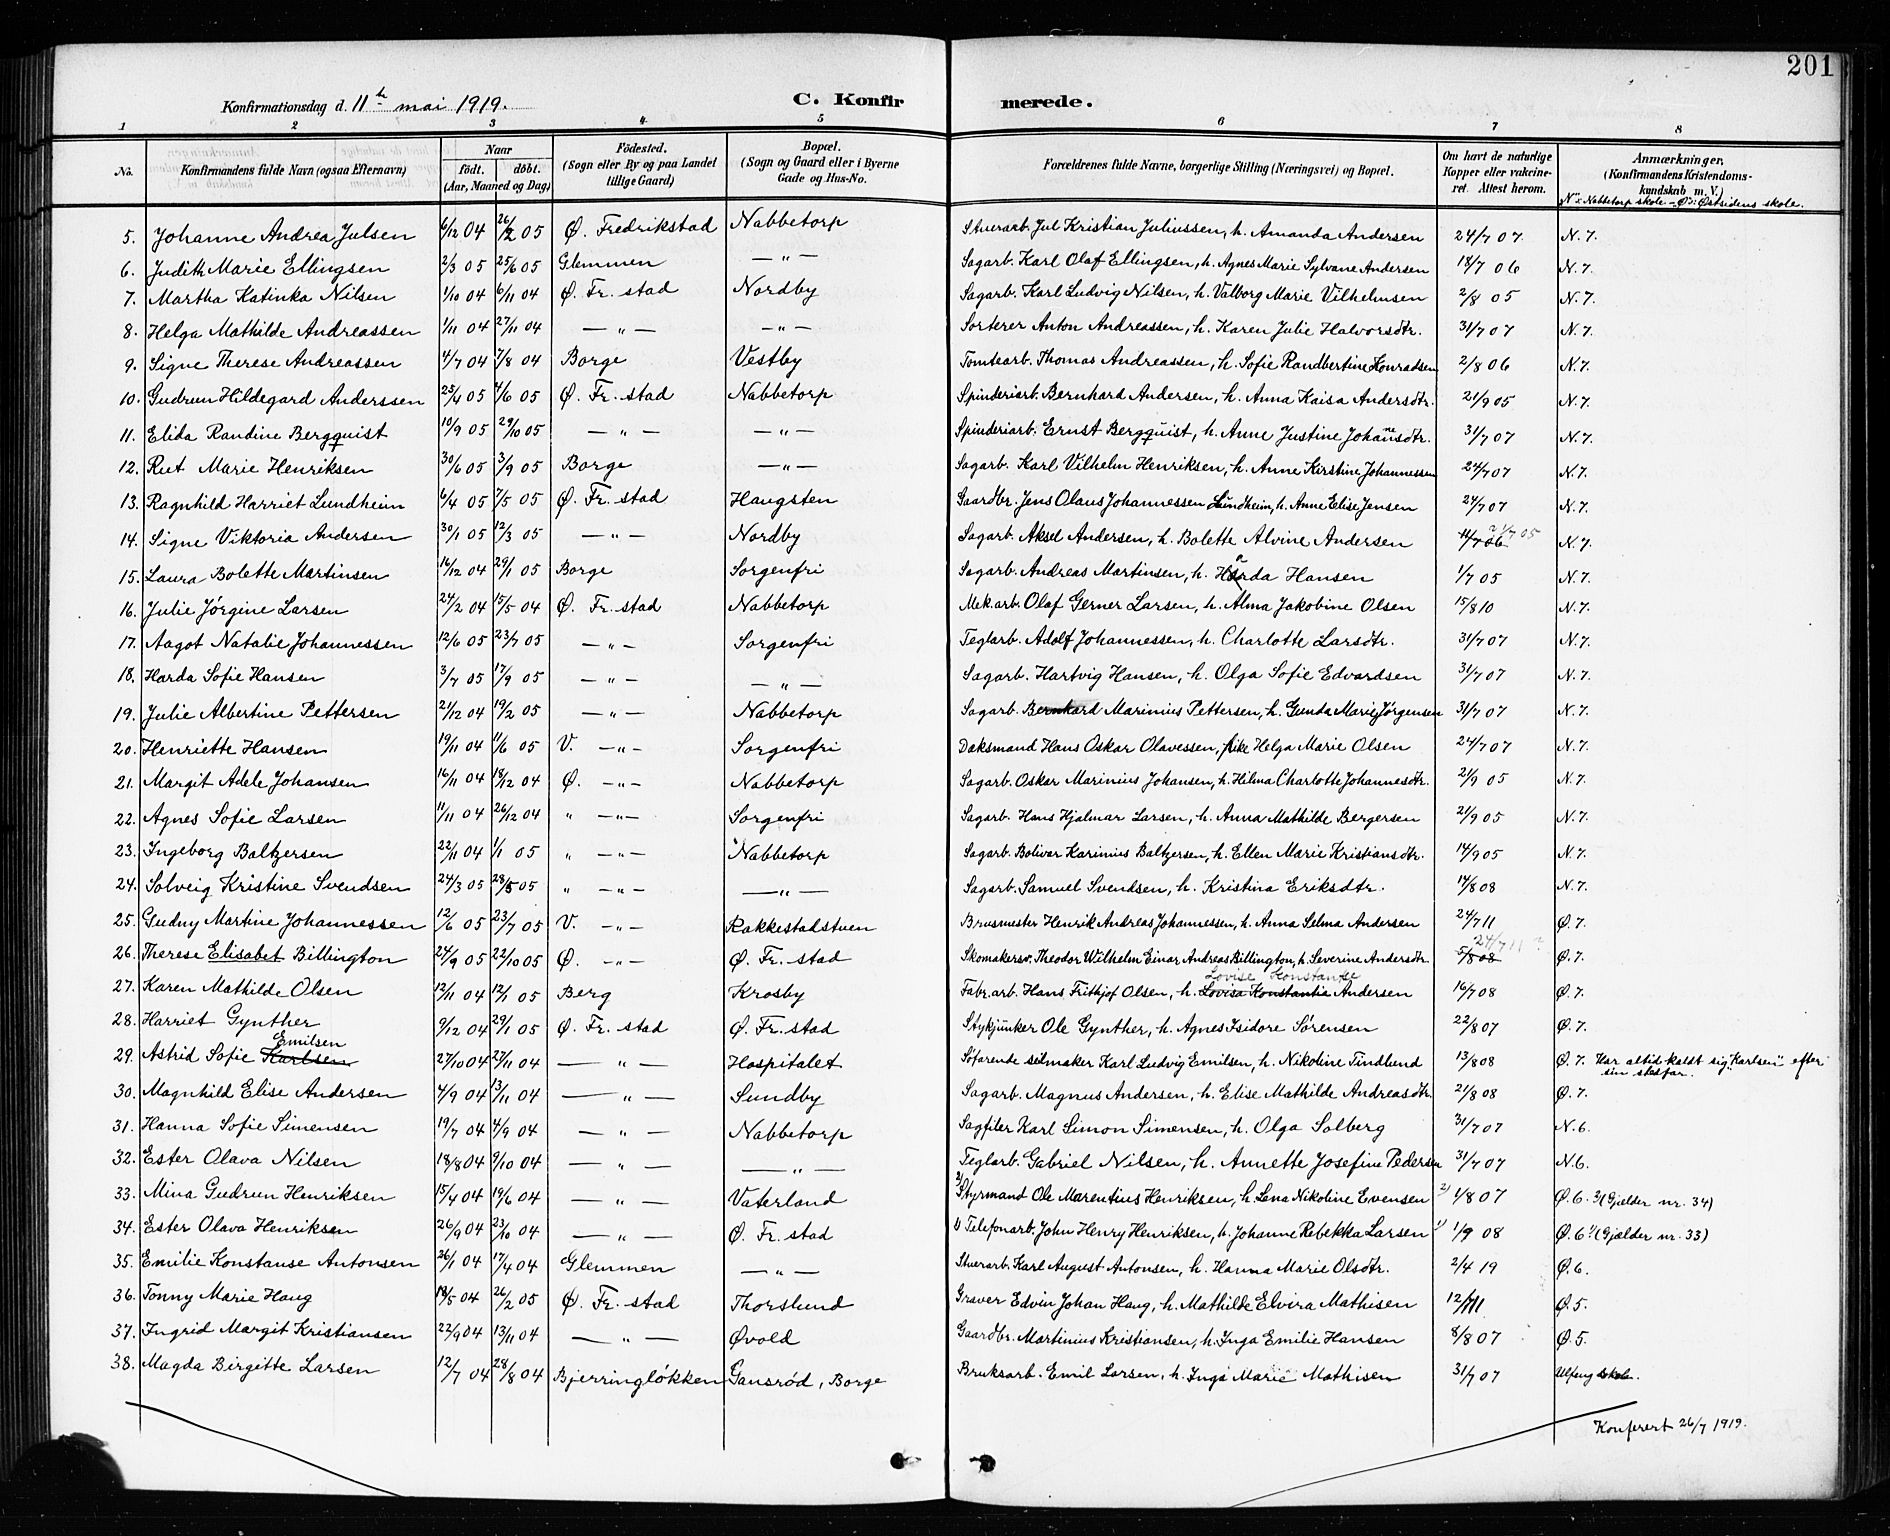 201
Konfirmationsdag d. 11te mai 1919. C. Konfirmerede.
1 2 3 4 5 6 7 8
No. Konfirmandens fulde Navn (ogsaa Efternavn) Naar födt. döbt. (Aar, Maaned og Dag) Födested. (Sogn eller By og paa Landet tillige Gaard) Bopæl. (Sogn og Gaard eller i Byerne Gade og Hus-No. Forældrenes fulde Navne, borgerlige Stilling (Næringsvei) og Bopæl. Om havt de naturlige Kopper eller vakcineret. Attest herom. Anmærkninger, (Konfirmandens Kristendomskundskab m. V.) N = Nabbetorp skole - Ø = Østsidens skole.
5. Johanne Andrea Julsen 6/12 04 26/2 05 Ø. Fredrikstad Nabbetorp Stuerarb. Jul Kristian Juliussen, h. Amanda Andersen 24/7 07 N. 7.
6. Judith Marie Ellingsen 2/3 05 25/6 05 Glemmen — " — Sagarb. Karl Olaf Ellingsen, h. Agnes Marie Sylvane Andersen 18/7 06 N. 7.
7. Martha Katinka Nilsen 1/10 04 6/11 04 Ø. Fr. stad Nordby Sagarb. Karl Ludvig Nilsen, h. Valborg Marie Vilhelmsen 2/8 05 N. 7.
8. Helga Mathilde Andreassen 1/11 04 27/11 04 — " — — " — Sorterer Anton Andreassen, h. Karen Julie Halvorsdtr. 31/7 07 N. 7.
9. Signe Therese Andreassen 4/7 04 7/8 04 Borge Vestby Tomtearb. Thomas Andreassen, h. Sofie Randbertine Konradsen 2/8 06 N. 7.
10. Gudrun Hildegard Anderssen 25/4 05 4/6 05 Ø. Fr. stad Nabbetorp Spinderiarb. Bernhard Andersen, h. Anna Kaisa Andersdtr. 21/9 05 N. 7.
11. Elida Randine Bergquist 10/9 05 29/10 05 — " — — " — Spinderiarb. Ernst Bergquist, h. Anne Justine Johannesdtr. 31/7 07 N. 7.
12. Rut Marie Henriksen 30/6 05 3/9 05 Borge — " — Sagarb. Karl Vilhelm Henriksen, h. Anne Kirstine Johannessen 24/7 07 N. 7.
13. Ragnhild Harriet Lundheim 6/4 05 7/5 05 Ø. Fr. stad Haugsten Gaardbr. Jens Olaus Johannessen Lundheim, h. Anne Elise Jensen 24/7 07 N. 7.
14. Signe Viktoria Andersen 30/1 05 12/3 05 — " — Nordby Sagarb. Aksel Andersen, h. Bolette Alvine Andersen N. 7.
15. Laura Bolette Martinsen 16/12 04 29/1 05 Borge Sorgenfri Sagarb. Andreas Martinsen, h. Harda Hansen 1/7 05 N. 7.
16. Julie Jørgine Larsen 24/2 04 15/5 04 Ø. Fr. stad Nabbetorp Mek. arb. Olaf Gerner Larsen, h. Alma Jakobine Olsen 15/8 10 N. 7.
17. Aagot Natalie Johannessen 12/6 05 23/7 05 — " — Sorgenfri Teglarb. Adolf Johannessen, h. Charlotte Larsdtr. 31/7 07 N. 7.
18. Harda Sofie Hansen 3/7 05 17/9 05 — " — — " — Sagarb. Hartvig Hansen, h. Olga Sofie Edvardsen 31/7 07 N. 7.
19. Julie Albertine Pettersen 21/12 04 19/2 05 — " — Nabbetorp Sagarb. Bernhard Marinius Pettersen, h. Gunda Marie Jørgensen 31/7 07 N. 7.
20. Henriette Hansen 19/11 04 11/6 05 V. — " — Sorgenfri Daksmand Hans Oskar Olavessen, pike Helga Marie Olsen 24/7 07 N. 7.
21. Margit Adele Johansen 16/11 04 18/12 04 Ø. — " — Nabbetorp Sagarb. Oskar Marinius Johansen, h. Hilma Charlotte Johannesdtr. 21/9 05 N. 7.
22. Agnes Sofie Larsen 11/11 04 26/12 04 " — " — Sorgenfri Sagarb. Hans Hjalmar Larsen, h. Anna Mathilde Bergersen 21/9 05 N. 7.
23. Ingeborg Baltzersen 22/11 04 1/1 05 " — " — Nabbetorp Sagarb. Bolivar Karinius Baltzersen, h. Ellen Marie Kristiansdtr. 14/9 05 N. 7.
24. Solveig Kristine Svendsen 24/3 05 28/5 05 " — " — — " — Sagarb. Samuel Svendsen, h. Kristina Eriksdtr. 14/8 08 N. 7.
25. Gudny Martine Johannessen 12/6 05 23/7 05 V. — " — Rakkestadstuen Brusmester Henrik Andreas Johannessen, h. Anna Selma Andersen 24/7 11 Ø. 7.
26. Therese Elisabet Billington 24/9 05 22/10 05 Ø. — " — Ø. Fr. stad Skomakersv. Theodor Wilhelm Einar Andreas Billington, h. Severine Andersdtr. 5/8 08 24/7 11 ? Ø. 7.
27. Karen Mathilde Olsen 12/11 04 12/1 05 Berg Krosby Fabr. arb. Hans Frithjof Olsen, h. Lovisa Konstantia Lovise Konstanse Andersen 16/7 08 Ø. 7.
28. Harriet Gynther 9/12 04 29/1 05 Ø. Fr. stad Ø. Fr. stad Stykjunker Ole Gynther, h. Agnes Isidore Sørensen 22/8 07 Ø. 7.
29. Astrid Sofie Karlsen Emilsen 27/10 04 27/11 04 — " — Hospitalet Søfarende seilmaker Karl Ludvig Emilsen, h. Nikoline Tindlund 13/8 08 Ø. 7. Har altid kaldt sig "Karlsen" efter sin stesfar.
30. Magnhild Elise Andersen 4/9 04 13/11 04 — " — Sundby Sagarb. Magnus Andersen, h. Elise Mathilde Andreasdtr. 21/8 08 Ø. 7.
31. Hanna Sofie Simensen 19/7 04 4/9 04 — " — Nabbetorp Sagfiler Karl Simon Simensen, h. Olga Solberg 31/7 07 N. 6.
32. Ester Olava Nilsen 18/8 04 9/10 04 — " — — " — Teglarb. Gabriel Nilsen, h. Annette Josefine Pedersen 31/7 07 N. 6.
33. Mina Gudrun Henriksen 15/4 04 19/6 04 — " — Vaterland 2) Styrmand Ole Marentius Henriksen, h. Lena Nikoline Evensen 2) 1/8 07 Ø. 6. 2) (Gjelder nr. 34)
34. Ester Olava Henriksen 26/9 04 23/10 04 — " — Ø. Fr. stad 1) Telefonarb. John Henry Henriksen, h. Johanne Rebekka Larsen 1) 1/9 08 Ø. 6 1) (Gjælder nr. 33)
35. Emilie Konstanse Antonsen 26/1 04 17/4 04 Glemmen — " — Stuerarb. Karl August Antonsen, h. Hanna Marie Olsdtr. 2/4 19 Ø. 6.
36. Tonny Marie Haug 18/5 04 26/2 05 Ø. Fr. stad Thorslund Graver Edvin Johan Haug, h. Mathilde Elvira Mathisen Ø. 5.
37. Ingrid Margit Kristiansen 22/9 04 13/11 04 — " — Øvold Gaardbr. Martinius Kristiansen, h. Inga Emilie Hansen 8/8 07 Ø. 5.
38. Magda Birgitte Larsen 12/7 04 28/8 04 Bjerringløkken Gansrød, Borge Bruksarb. Emil Larsen, h. Inga Marie Mathisen 31/7 07 Ulfeng skole.
Konferert 26/7 1919.